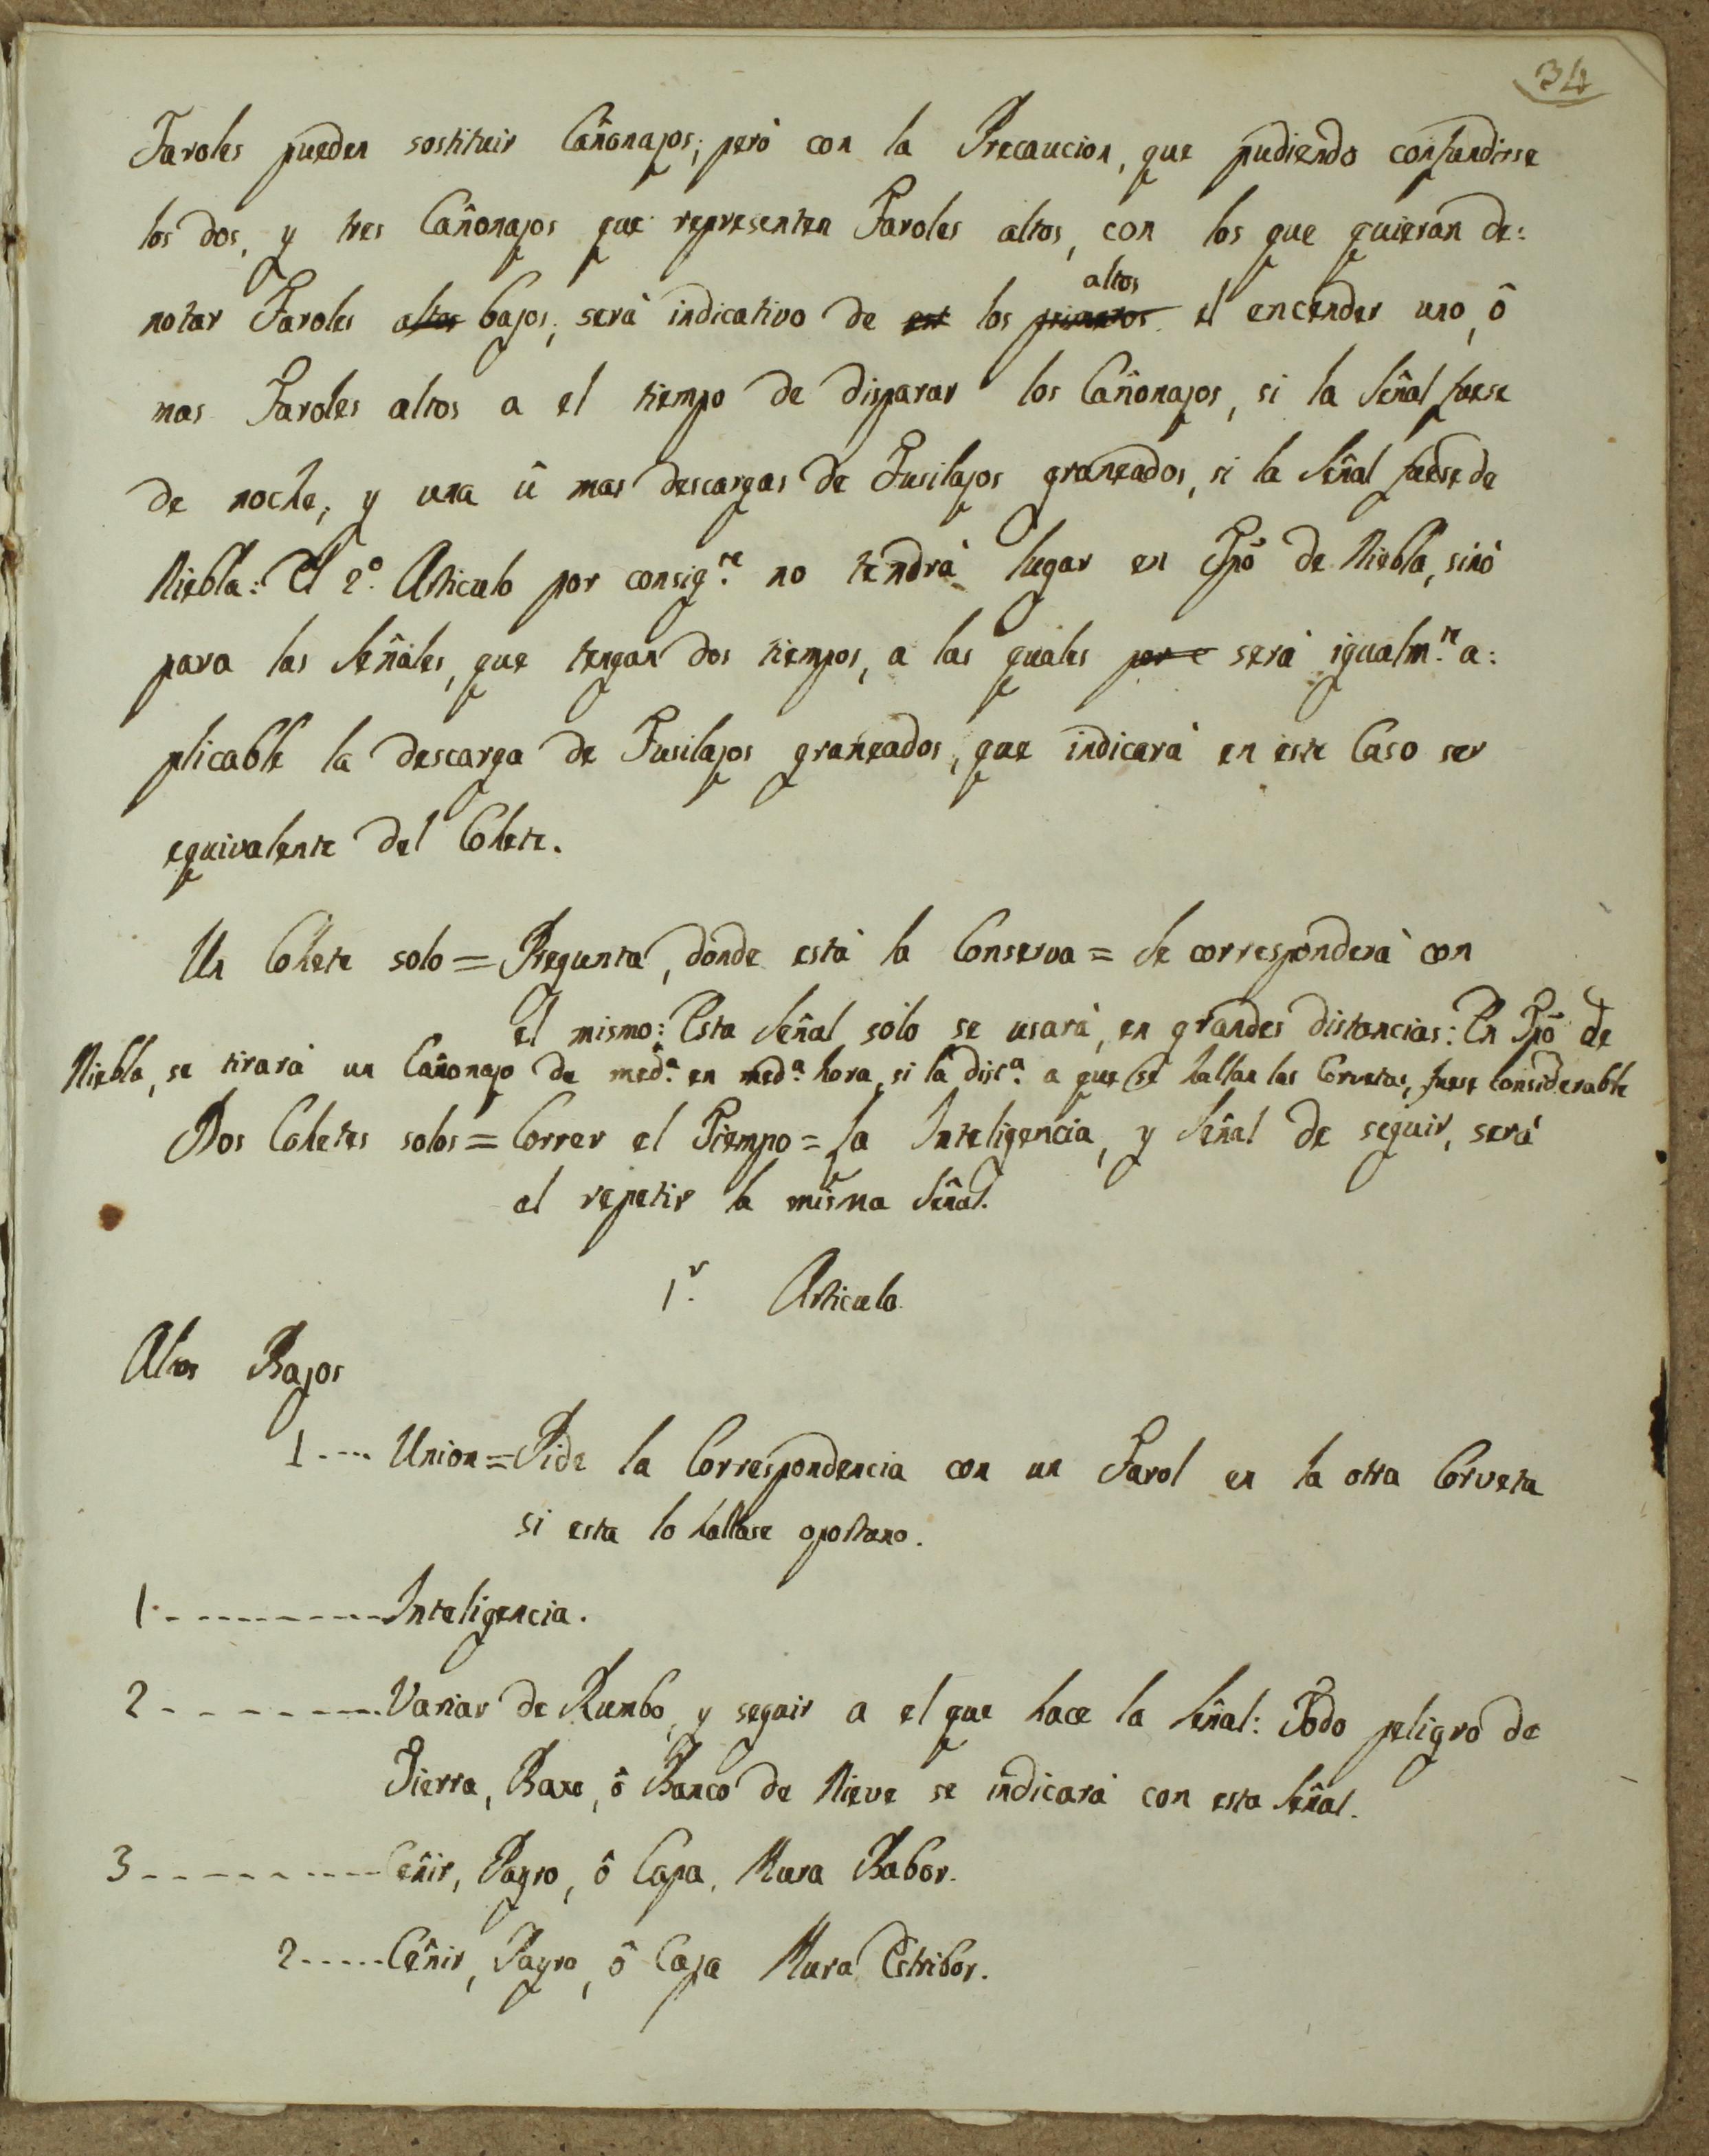 34
Faroles pueden sostituir Cañonajos; però con la Precaucion, que pudiendo confundirse
los dos, y tres Cañonajos que representen Faroles altos, con los que quieran de:
notar Faroles altos bajos, serà indicativo de est los primeros altos el encender uno, ô
mas Faroles altos a el tiempo de disparar los Cañonajos, si la Señal fuese
de noche; y una û mas descargas de Fusilajos graneados, si la Señal fuese de
Niebla: El 2º Articulo por consig.te no tendrà lugar en Tpõ de Niebla, sinò
para las Señales, que tengan dos tiempos, a las quales por e serà igualm.te a:
plicable la descarga de Fusilajos graneados, que indicarà en este Caso ser
equivalente del Cohete.
Un Cohete solo = Pregunta, donde està la Conserva = Se corresponderà con
el mismo: Esta Señal sòlo se usarà, en grandes distancias: En Tpõ de
Niebla, se tirarà un Cañonajo de med.a en med.a hora, si la dist.a a que se hallan las Corvetas, fuese considerable
Dos Cohetes solos = Correr el Tiempo = La Inteligencia, y Señal de seguir, serà
el repetir la misma Señal.
1.r Articulo
Altos Bajos
1 ---- Union = Pide la Correspondencia con un Farol en la otra Corveta
si esta lo hallase oportuno.
1 ---------- Inteligencia.
2 -------- Variar de Rumbo, y seguir a el que hace la Señal: Todo peligro de
Tierra, Baxo, ô Banco de Nieve se indicarà con esta Señal.
3 --------- Ceñir, Payro, ô Capa, Mura Babor.
2 ----- Ceñir, Payro, ô Capa Mura Estribor.